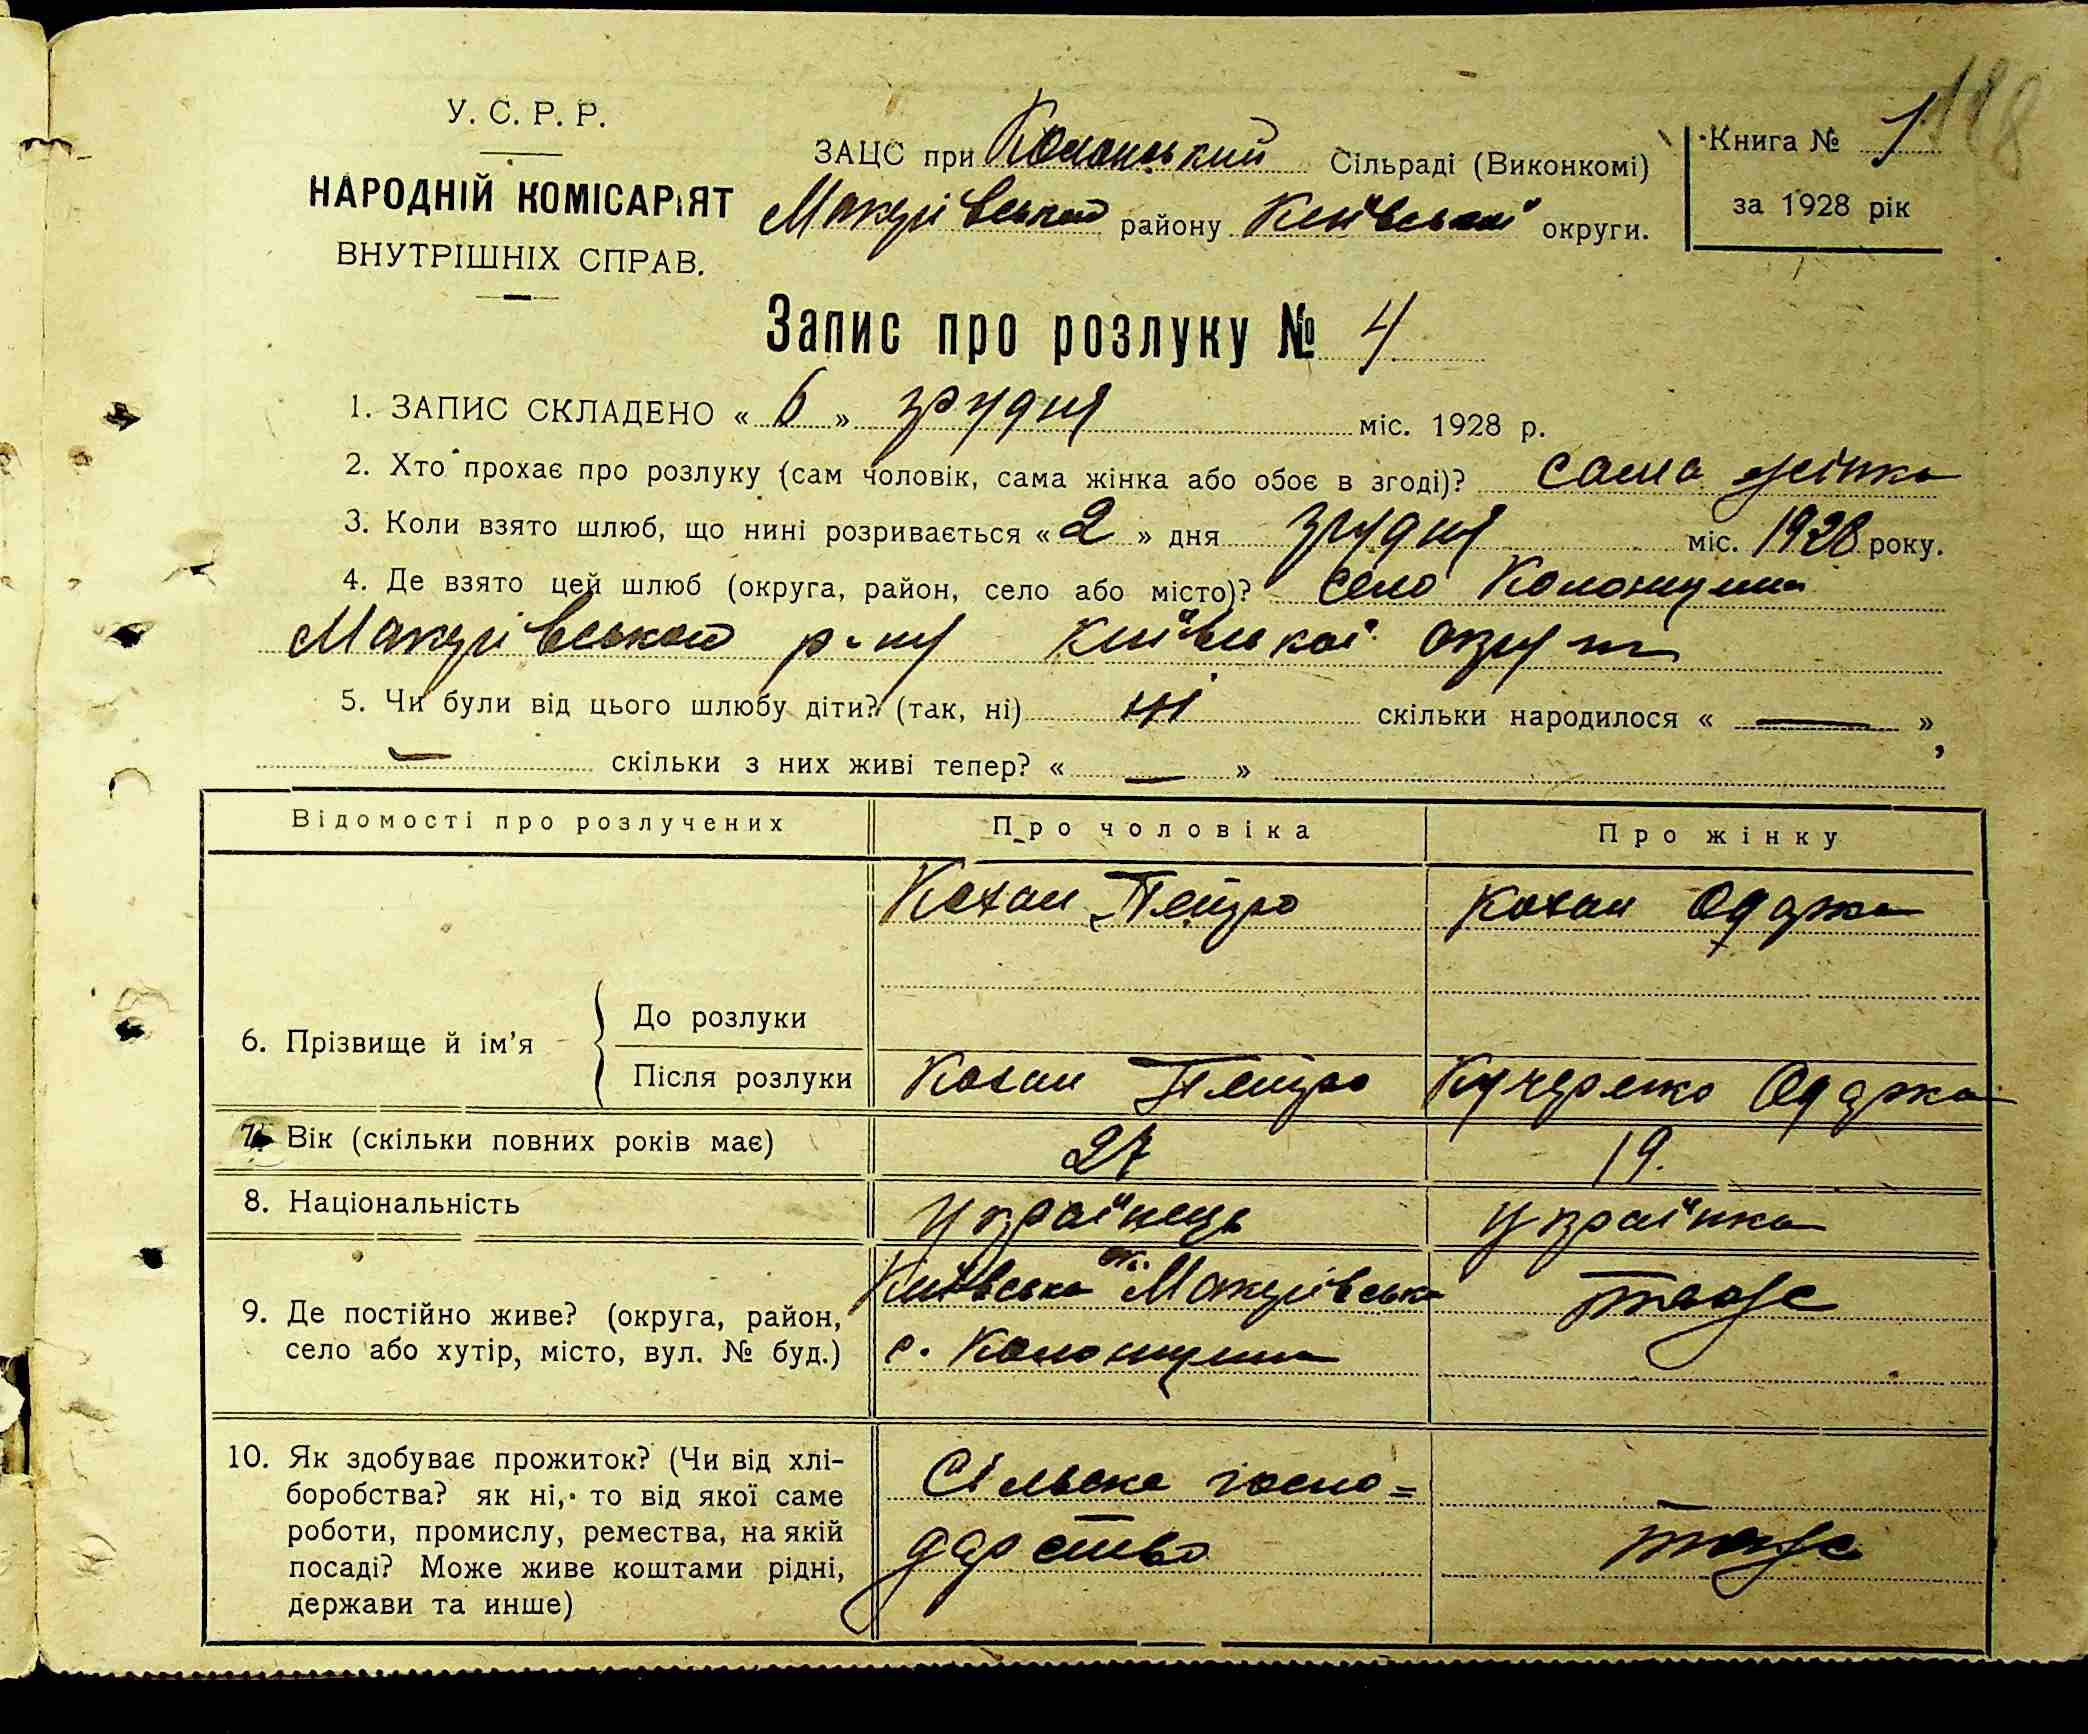 У. С. Р. Р.
НАРОДНІЙ КОМІСАРІЯТ
ВНУТРІШНІХ СПРАВ.
ЗАЦС при Сільраді (Виконкомі)
Макарівського району Київської округи.
Книга № 1
за 1928 рік
188
Запис про розлуку № 4
1. ЗАПИС СКЛАДЕНО « 6 » грудня міс. 1928 р.
2. Хто прохає про розлуку (сам чоловік, сама жінка або обоє в згоді)? сама жінка
3. Коли взято шлюб, що нині розривається « 2 » дня грудня міс. 1928 року.
4. Де взято цей шлюб (округа, район, село або місто)? село Колонщина
Макарівського р-ну Київської округи
5. Чи були від цього шлюбу діти? (так, ні) ні скільки народилося « — »,
— скільки з них живі тепер? « — »
Відомості про розлучених Про чоловіка Про жінку
Кохан Петро Кохан Одарка
6. Прізвище й ім’я
До розлуки
Після розлуки Кохан Петро Кучеренко Одарка
7. Вік (скільки повних років має) 27 19.
8. Національність українець українка
9. Де постійно живе? (округа, район, село або хутір, місто, вул. № буд.)
Київська ок. Макарівськ тоже
с. Колонщина
10. Як здобуває прожиток? (Чи від хлі-
боробства? як ні, то від якої саме
роботи, промислу, ремества, на якій
посаді? Може живе коштами рідні,
держави та инше)
Сільське госпо=
дарство тоже